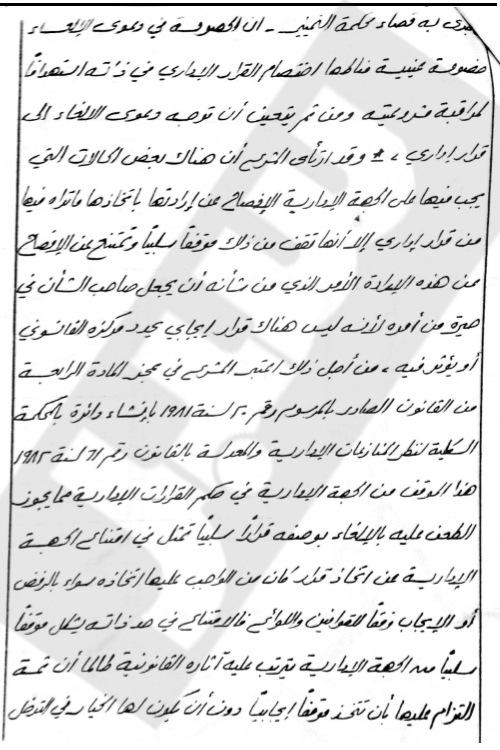 جرى به قضاء محكمة التمييز - ان الخصومة في دعوى الإلغاء
خصومة عينية مناطها اختصام القرار الإداري في ذاته استهدافاً
لمراقبة مشروعيته ومن ثم يتعين أن توجه دعوى الالغاء الى
قرار إداري ، وقد ارتأى المشرع أن هناك بعض الحالات التي
يجب فيها على الجهة الإدارية الإفصاح عن إرادتها باتخاذها ماتراه فيها
من قرار إداري إلا أنها تقف من ذلك موقفاً سلبياً وتمتنع عن الإفصاح
عن هذه الإرادة الأمر الذي من شأنه أن يجعل صاحب الشأن في
حيرة من أمره لأنه ليس هناك قرار إيجابي يحدد مركزه القانوني
أو يؤثر فيه ، من أجل ذلك اعتبر المشرع في عجز المادة الرابعة
من القانون الصادر بالمرسوم رقم ٢٠ لسنة ١٩٨١ بإنشاء دائرة بالمحكمة
الكلية لنظر المنازعات الإدارية والمعدلة بالقانون رقم ٦١ لسنة ١٩٨٢
هذا الموقف من الجهة الإدارية في حكم القرارات الإدارية مما يجوز
الطعن عليه بالإلغاء بوصفه قراراً سلبياً تمثل في امتناع الجهة
الإدارية عن اتخاذ قرار كان من الواجب عليها اتخاذه سواء بالرفض
أو الإيجاب وفقاً للقوانين واللوائح فالامتناع في حد ذاته يشكل موقفاً
سلبياً من الجهة الإدارية يترتب عليه آثاره القانونية طالما أن ثمة
التزام عليها بأن تتخذ موقفاً إيجابياً دون أن يكون لها الخيار في التدخل